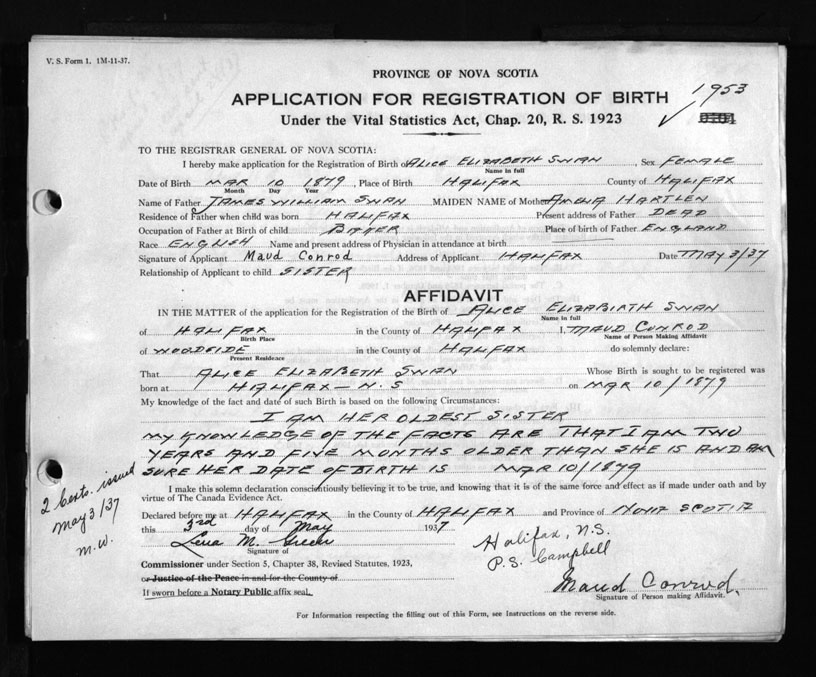 V. S. Form 1. 1M-11-37.
PROVINCE OF NOVA SCOTIA
APPLICATION FOR REGISTRATION OF BIRTH
1953
Under the Vital Statistics Act, Chap. 20, R. S. 1923
TO THE REGISTRAR GENERAL OF NOVA SCOTIA:
I hereby make application for the Registration of Birth of ALICE ELIZABETH SWAN, Sex FEMALE
Name in full
Date of Birth MAR 10 1879, Place of Birth HALIFAX County of HALIFAX
Month Day Year
Name of Father JAMES WILLIAM SWAN MAIDEN NAME of Mother AMELIA HARTLEN
Residence of Father when child was born HALIFAX Present address of Father DEAD
Occupation of Father at Birth of child Place of birth of Father ENGLAND
Race ENGLISH Name and present address of Physician in attendance at birth
Signature of Applicant Maud Conrod Address of Applicant HALIFAX Date MAY 3/37
Relationship of Applicant to child SISTER
AFFIDAVIT
IN THE MATTER of the application for the Registration of the Birth of ALICE ELIZABIRTH SWAN
Name in full
of HALIFAX in the County of HALIFAX I, MAUD CONROD
Birth Place Name of Person Making Affidavit
of WOODSIDE in the County of HALIFAX do solemnly declare:
Present Residence
That ALICE ELIZABETH SWAN Whose Birth is sought to be registered was
born at HALIFAX - N.S on MAR 10/1879
My knowledge of the fact and date of such Birth is based on the following Circumstances:
I AM HER OLDEST SISTER
MY KNOWLEDGE OF THE FACTS ARE THAT I AM TWO
YEARS AND FIVE MONTHS OLDER THAN SHE IS AND AM
SURE HER DATE OF BIRTH IS MAR 10/1879
2 Certs. issued
May 3/37
M.W.
I make this solemn declaration conscientiously believing it to be true, and knowing that it is of the same force and effect as if made under oath and by
virtue of The Canada Evidence Act.
Declared before me at HALIFAX in the County of HALIFAX and Province of NOVA SCOTIA
this 3rd day of May 1937
Lena M. Green
Halifax, N.S.
P.S. Campbell
Signature of
Commissioner under Section 5, Chapter 38, Revised Statutes, 1923,
or Justice of the Peace in and for the County of
Maud Conrod.
Signature of Person making Affidavit.
If sworn before a Notary Public affix seal.
For Information respecting the filling out of this Form, see Instructions on the reverse side.